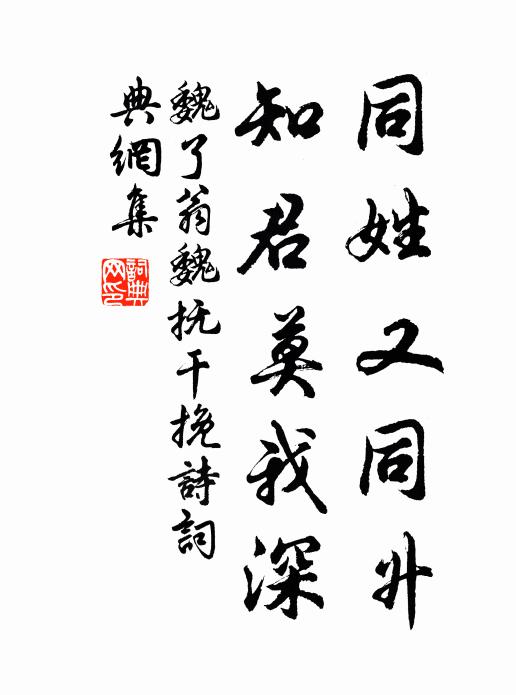 同姓又同升
知君莫我深
魏了翁魏抚干挽詩詞
典網集
詞典網印